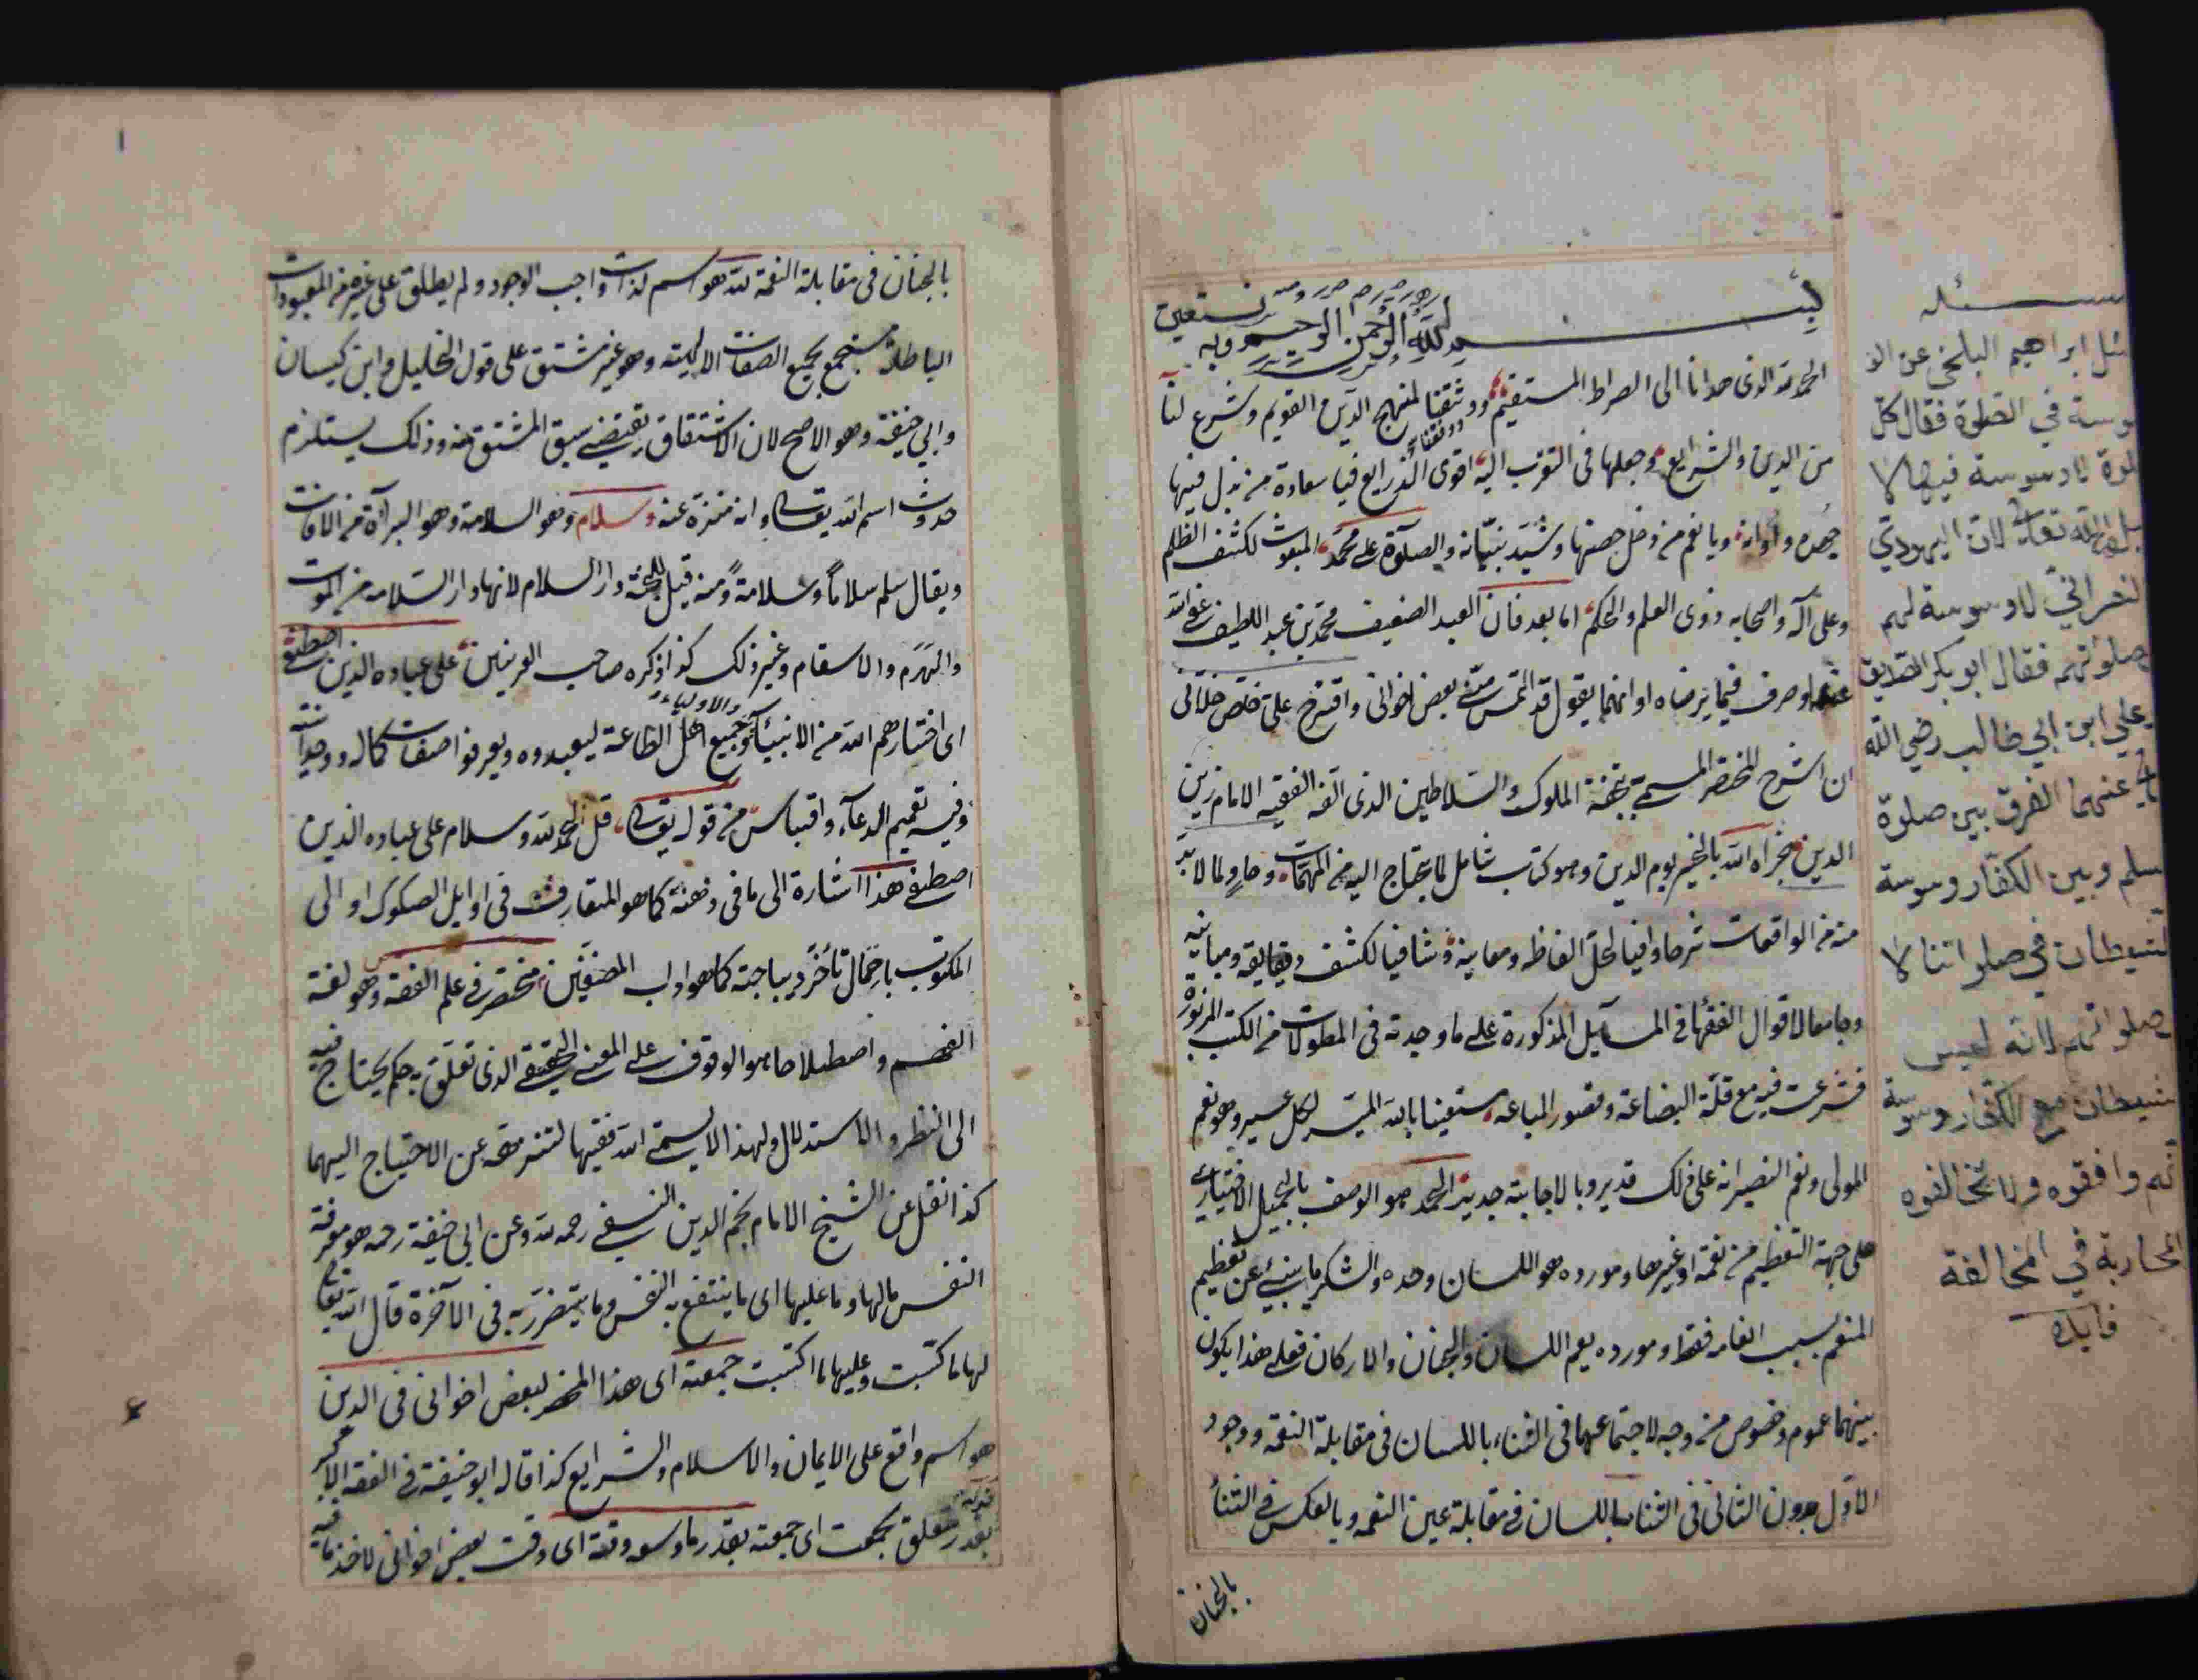 بسم الله الرحمن الرحيم وبه نستعين
الحمد لله الذى هدانا الى الصراط المستقيم ووثقنا لمنهج الدين القويم وشرع لنا
ووفقنا
من الدين والشرايع وجعلها فى التقرب اليه اقوى الذرايع فيا سعادة من بذل فيها
جهده واوانه ويا نعم من دخل حصنها وشيد بنيانه والصلوة على محمد المبعوث لكشف الظلم
وعلى آله واصحابه ذوى العلم والحكم اما بعد فان العبد الضعيف محمد بن عبد اللطيف عفى الله
عنهما وصرف فيما يرضاه اوانهما يقول قد التمس منى بعض اخوانى واقترح على خلص خلانى
ان اشرح المختصر المسمى بتحفة الملوك والسلاطين الذى الفه الفقيه الامام زين
الدين جزاه الله بالخير يوم الدين وهو كتاب شامل لما يحتاج اليه من المهمات وحاو لما لا بد
منه من الواقعات شرحا وافيا لحل الفاظه ومعانيه وشافيا لكشف دقايقه ومبانيه
وجامعا لاقوال الفقها فى المسآيل المذكورة على ما وجدته فى المطولات من الكتب المزبورة
فشرعت فيه مع قلة البضاعة وقصور الباعه مستعينا بالله الميسر لكل عسير وهو نعم
المولى ونعم النصير انه على ذلك قدير وبالاجابة جدير الحمد هو الوصف بالجميل الاختيارى
على جهة التعظيم من نعمة او غيرها ومورده هو اللسان وحده والشكر ما ينبئ عن تعظيم
المنعم بسبب انعامه فقط ومورده يعم اللسان والجنان والاركان فعلى هذا يكون
بينهما عموم وخصوص من وجه لاجتماعهما فى الثناء باللسان فى مقابلة النعمة ووجود
الاول بدون الثانى فى الثناء باللسان فى مقابلة غير النعمه وبالعكس فى الثنأ
بالجنان
ئل ابراهيم البلخي عن الو
وسة في الصلوة فقال كل
لوة لا وسوسة فيها لا
الله تعالى لان اليهودي
لنصراني لا وسوسة لهم
صلواتهم فقال ابو بكر الصديق
وعلي ابن ابي طالب رضي الله
عنهما الفرق بين صلوة
سلم وبين الكفار وسوسة
لشيطان في صلواتنا لا
صلواتهم لانه ليس
شيطان مع الكفار وسوسة
نهم وافقوه ولا تخالفوه
المحاربة في المخالفة
فايده
بالجنان فى مقابلة النعمة لله هو اسم لذات واجب الوجود ولم يطلق على غيره من المعبودات
الباطلة مستجمع بجميع الصفات الالهية وهو غير مشتق على قول الخليل وابن كيسان
وابي حنيفة وهو الاصح لان الاشتقاق يقتضى سبق المشتق منه وذلك يستلزم
حدوث اسم الله تعالى وانه منزه عنه وسلام وهو السلامة وهو البرآة من الافات
ويقال سلم سلاما وسلامة ومنه قيل للجنة دار السلام لانها دار السلامة من الموت
والهرم والاسقام وغير ذلك كذا ذكره صاحب الغريبين على عباده الذين اصطفى
اى اختارهم الله من الانبيآء والاولياء وجميع اهل الطاعة ليعبدوه ويعرفوا صفات كماله ووحدانيته
وفيه تعميم الدعآء واقتباس من قوله تعالى قل الحمد لله وسلام على عباده الذين
اصطفى هذا اشارة الى ما فى ذهنه كما هو المتعارف فى اوايل الصكوك او الى
المكتوب باحتمال تأخر ديباجته كما هو داب المصنفين مختصر فى علم الفقه وهو لغة
الفهم واصطلاحا هو الوقوف على المعنى الحقيقى الذى تعلق به حكم يحتاج فيه
الى النظر والاستدلال ولهذا لا يسمى الله فقيها لتنزهه عن الاحتياج اليهما
كذا نقل عن الشيخ الامام نجم الدين النسفى رحمه الله وعن ابى حنيفة رحمه هو معرفة
النفس ما لها وما عليها اى ما ينتفع به النفس وما يتضرر به فى الآخرة قال الله تعالى
لها ما كسبت وعليها ما اكتسبت جمعته اى هذا المختصر لبعض اخوانى فى الدين
هو اسم واقع على الايمان والاسلام والشرايع كذا قاله ابو حنيفة فى الفقه الاكبر
بقدر متعلق بجمعت اى جمعته بقدر ما وسعه وقته اى وقت بعض اخوانى لاخذ ما فيه